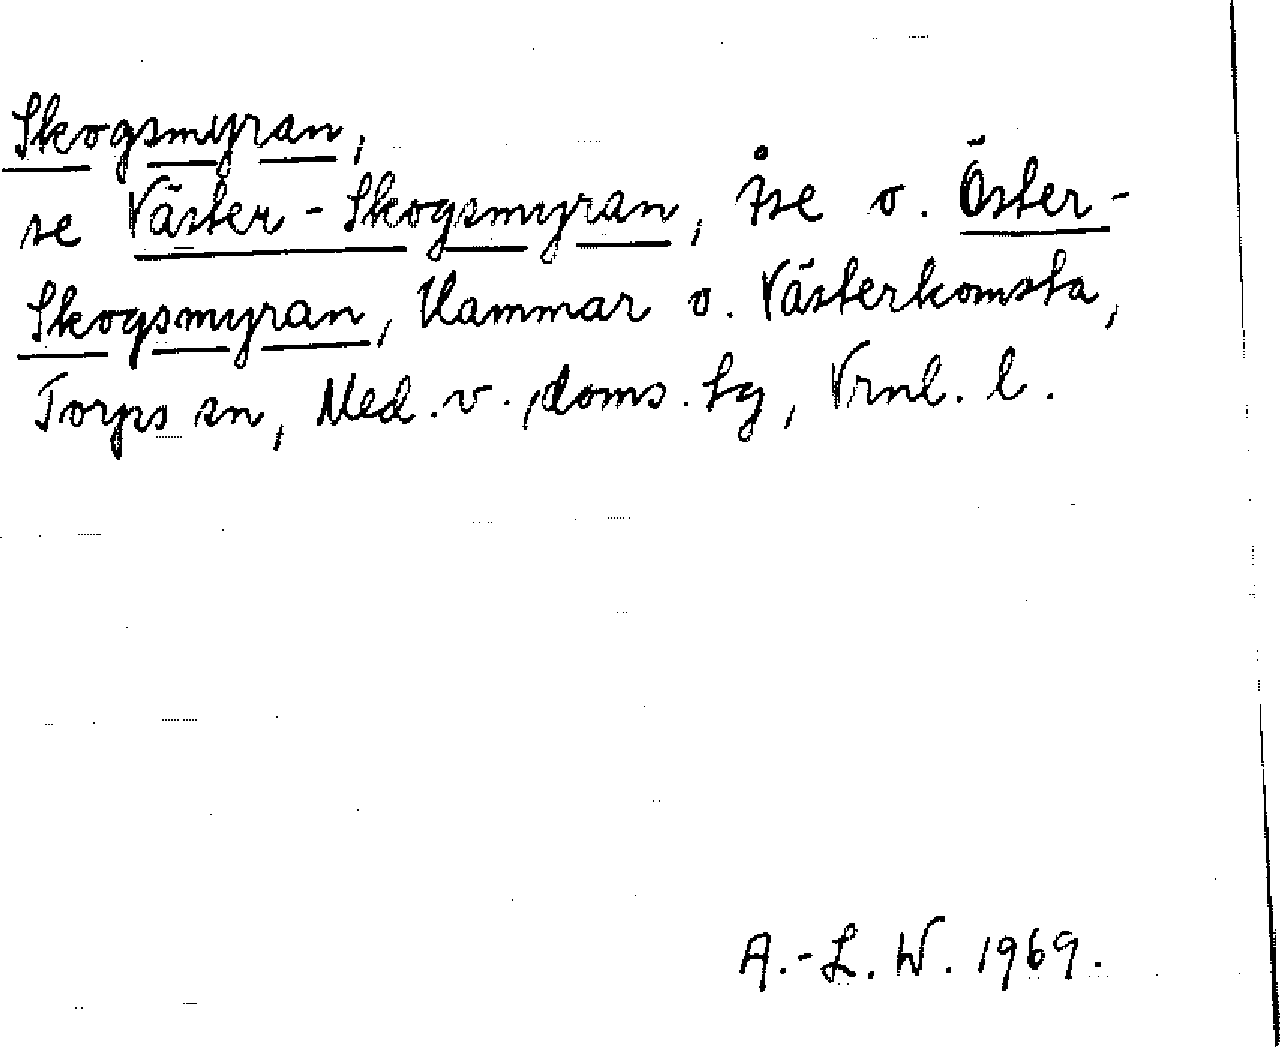 Skogsmyran,
se Väster-Skogsmyran, Åse o. Öster-
Skogsmyran, Hammar o. Västerkomsta,
Torps sn, Med. v. doms. tg, Vrnl. l.
A.-L. W. 1969.